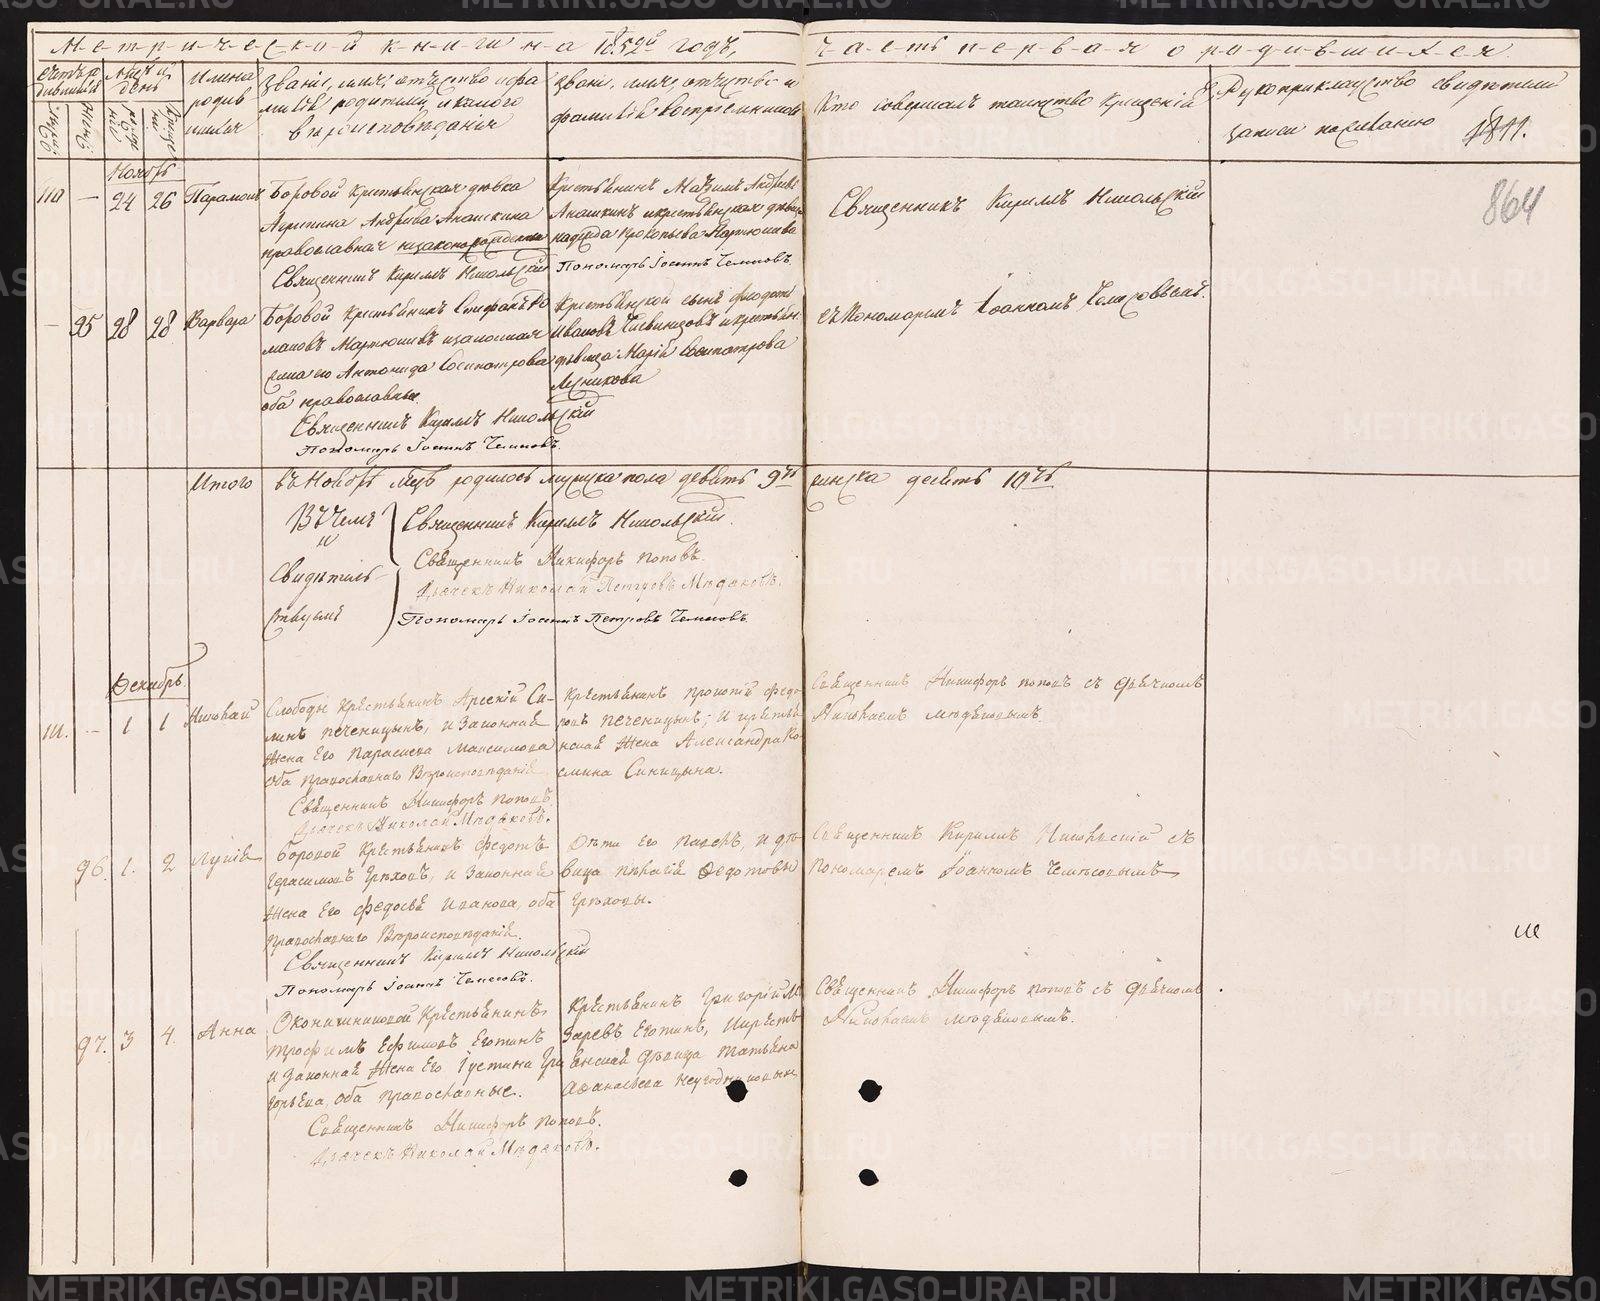 Метрической книги на 1852й годъ,
часть первая о родившихся
Счетъ родившихся
Мѣсяцъ и день
Имена родив
шихся
Званіе, имя, отчество и фа
милія родителей, и какого
вѣроисповѣданія
Званіе, имя, отчество и
фамилія воспріемниковъ
Кто совершалъ таинство крещенія
Рукоприкладство свидѣтелей
записи по желанію
1811.
864
Ноябрь
110 — 24 26 Парамонъ
Боровой крестьянская дѣвка
Агрипина Андреева Анашкина
православная незаконнорожденный
Священникъ Кириллъ Никольскій
Крестьянинъ Максимъ Андреевъ
Анашкинъ и крестьянская дѣвица
Надежда Прокопьева Мартюшева
Пономарь Іоаннъ
Священникъ Кириллъ Никольскій
съ Пономаремъ Іоанномъ
— 95 28 28 Варвара
Боровой крестьянинъ Стефанъ Ро
мановъ Мартюшевъ и законная
жена его Антонида Сосипатрова
оба православные
Священникъ Кириллъ Никольскій
Пономарь Іоаннъ
Крестьянской сынъ Феодотъ
Ивановъ и крестьян.
дѣвица Марія Сосипатрова
Итого въ Ноябрѣ м-цѣ родилось мужска пола девять 9ть
женска десять 10ть
Въ чемъ
и
Свидѣтель-
ствуемъ
Священникъ Кириллъ Никольскій.
Священникъ Никифоръ Поповъ.
Дьячекъ Николай Петровъ Мѣдяковъ.
Пономарь Іоаннъ Петровъ
Декабрь.
111. — 1 1 Николай
Слободы крестьянинъ Арсеній Си-
линъ Печеницынъ, и законная
жена его Параскева Максимова
оба православнаго вѣроисповѣданія
Священникъ Никифоръ Поповъ.
Дьячекъ Николай Мѣдяковъ.
Крестьянинъ Прокопій Федо-
ровъ Печеницынъ; и крестья
нская жена Александра Ко-
смина Синицына.
Священникъ Никифоръ Поповъ съ дьячкомъ
Николаемъ Мѣдяковымъ.
96. 1. 2 Лукія
Боровой крестьянинъ Федотъ
Герасимовъ Грѣховъ, и законная
жена его Федосья Иванова, оба
православнаго вѣроисповѣданія.
Священникъ Кириллъ Никольскій
Пономарь Іоаннъ
Дѣти его Павелъ, и дѣ-
вица Пелагія Федотовы
Грѣховы.
Священникъ Кириллъ Никольскій съ
Пономаремъ Іоанномъ
97. 3 4. Анна
крестьянинъ
Трофимъ Ефимовъ Еготинъ
и законная жена его Іустина Гри
горьева, оба православные.
Священникъ Никифоръ Поповъ.
Дьячекъ Николай Мѣдяковъ.
Крестьянинъ Григорій
Еготинъ, и кресть-
янская дѣвица Татьяна
Афанасьева
Священникъ Никифоръ Поповъ съ дьячкомъ
Николаемъ Мѣдяковымъ.
METRIKI.GASO-URAL.RU